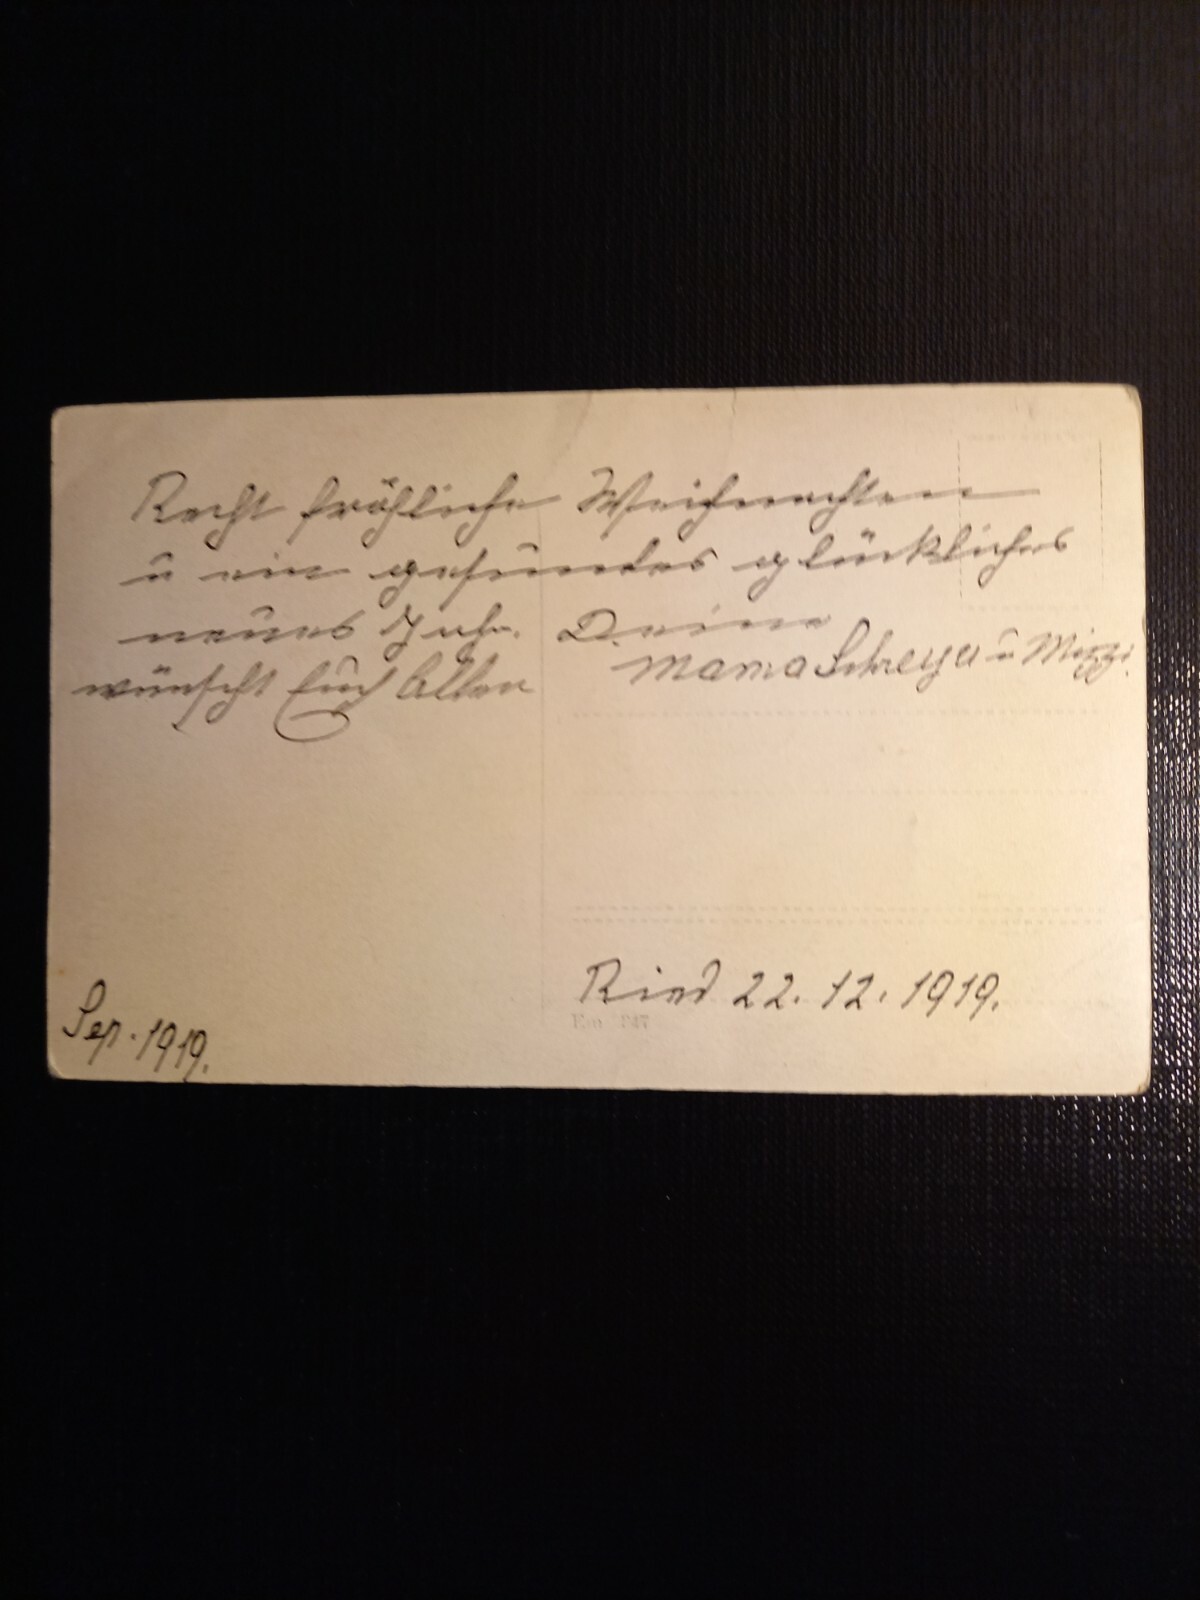 Recht fröhliche Weihnachten
u ein gesundes glückliches
neues Jahr. Deine
wünscht Euch Allen
Mama Schreyer u Mizzi.
Ried 22. 12. 1919.
Sep. 1919.